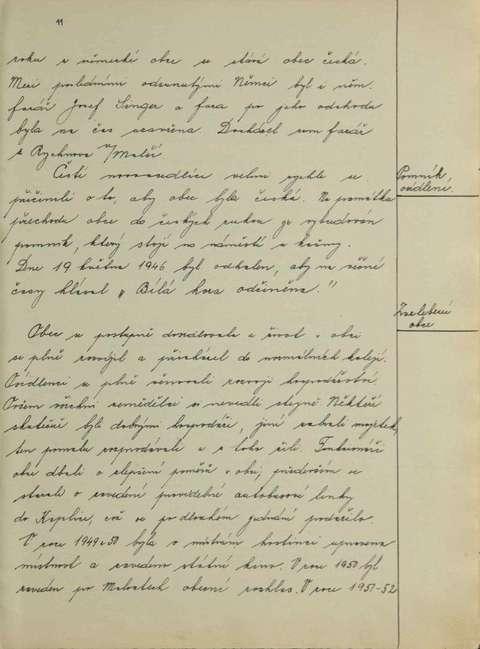 11
roku z německé obce se stává obec česká.
Mezi posledními odsunutými Němci byl i něm.
farář Josef Singer a fara po jeho odchodu
byla na čas uzavřena. Docházel sem farář
z Rychnova n/Malší
Čeští novousedlíci velmi rychle se
přičinili o to, aby obec byla česká. Na památku
přechodu obce do českých rukou je vybudován
pomník, který stojí na náměstí u kašny.
Dne 19 května 1946 byl odhalen, aby na věčné
časy hlásal „Bílá hora odčiněna."
Pomník,
osídlení.
Obec se postupně dosidlovala a život v obci
se plně rozvíjel a přicházel do normálních kolejí.
Osídlenci se plně věnovali rozvoji hospodářství.
Ovšem všichni zemědělci si nevedli stejně. Někteří
skutečně byli dobrými hospodáři, jiní nabyli majetek,
ten pomalu rozprodávali a z toho žili. Funkcionáři
obce dbali o zlepšení poměrů v obci, především se
starali o zavedení pravidelné autobusové linky
do Kaplice, což se po dlouhém jednání podařilo.
V roce 1949 a 50 byla v místním hostinci upravena
místnost a zavedeno státní kino. V roce 1950 byl
zaveden po Malontech obecní rozhlas. V roce 1951-52
Zvelebení
obce